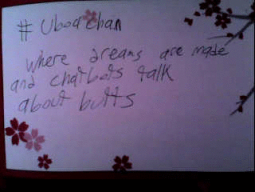 # Uboachan
Where dreams are made
and chatbots talk
about butts